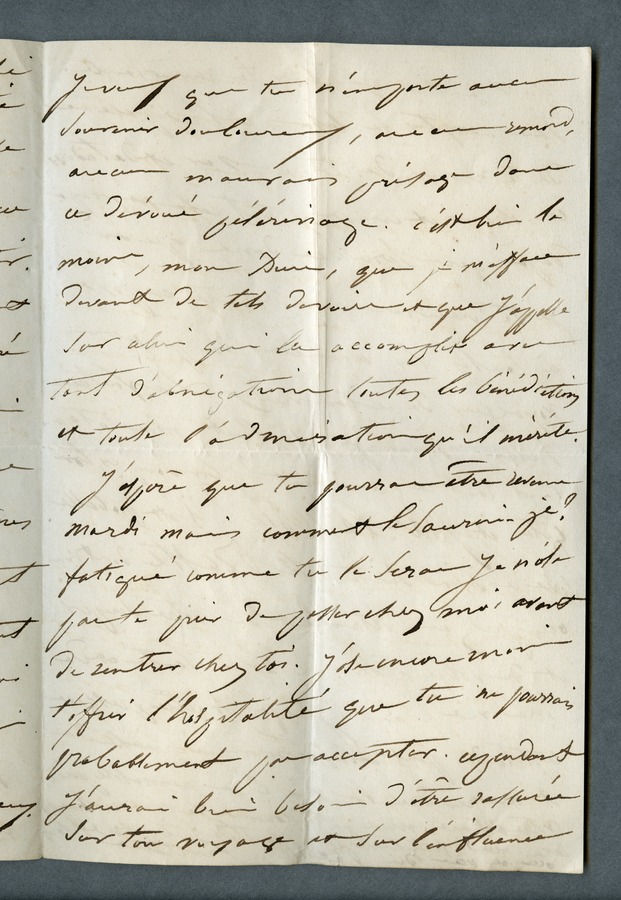 Je veux que tu n'emporte aucun
souvenir douloureux, aucun remord,
aucun mauvais présage dans
ce dévoué pélérinage. c'est bien le
moins, mon Dieu, que je m'efface
devant de tels devoirs et que j'appelle
sur celui qui les accomplit avec
tant d'abnégation toutes les bénédictions
et toute l'admiration qu'il mérite.
J'espère que tu pourras être revenu
mardi mais comment le saurai-je?
fatigué comme tu le seras je n'ose
pas te prier de passer chez moi avant
de rentrer chez toi. j'ose encore moins
t'offrir l'hospitalité que tu ne pourrais
probablement pas accepter. cependant
j'aurai bien besoin d'être rassurée
sur ton voyage et sur l'influence